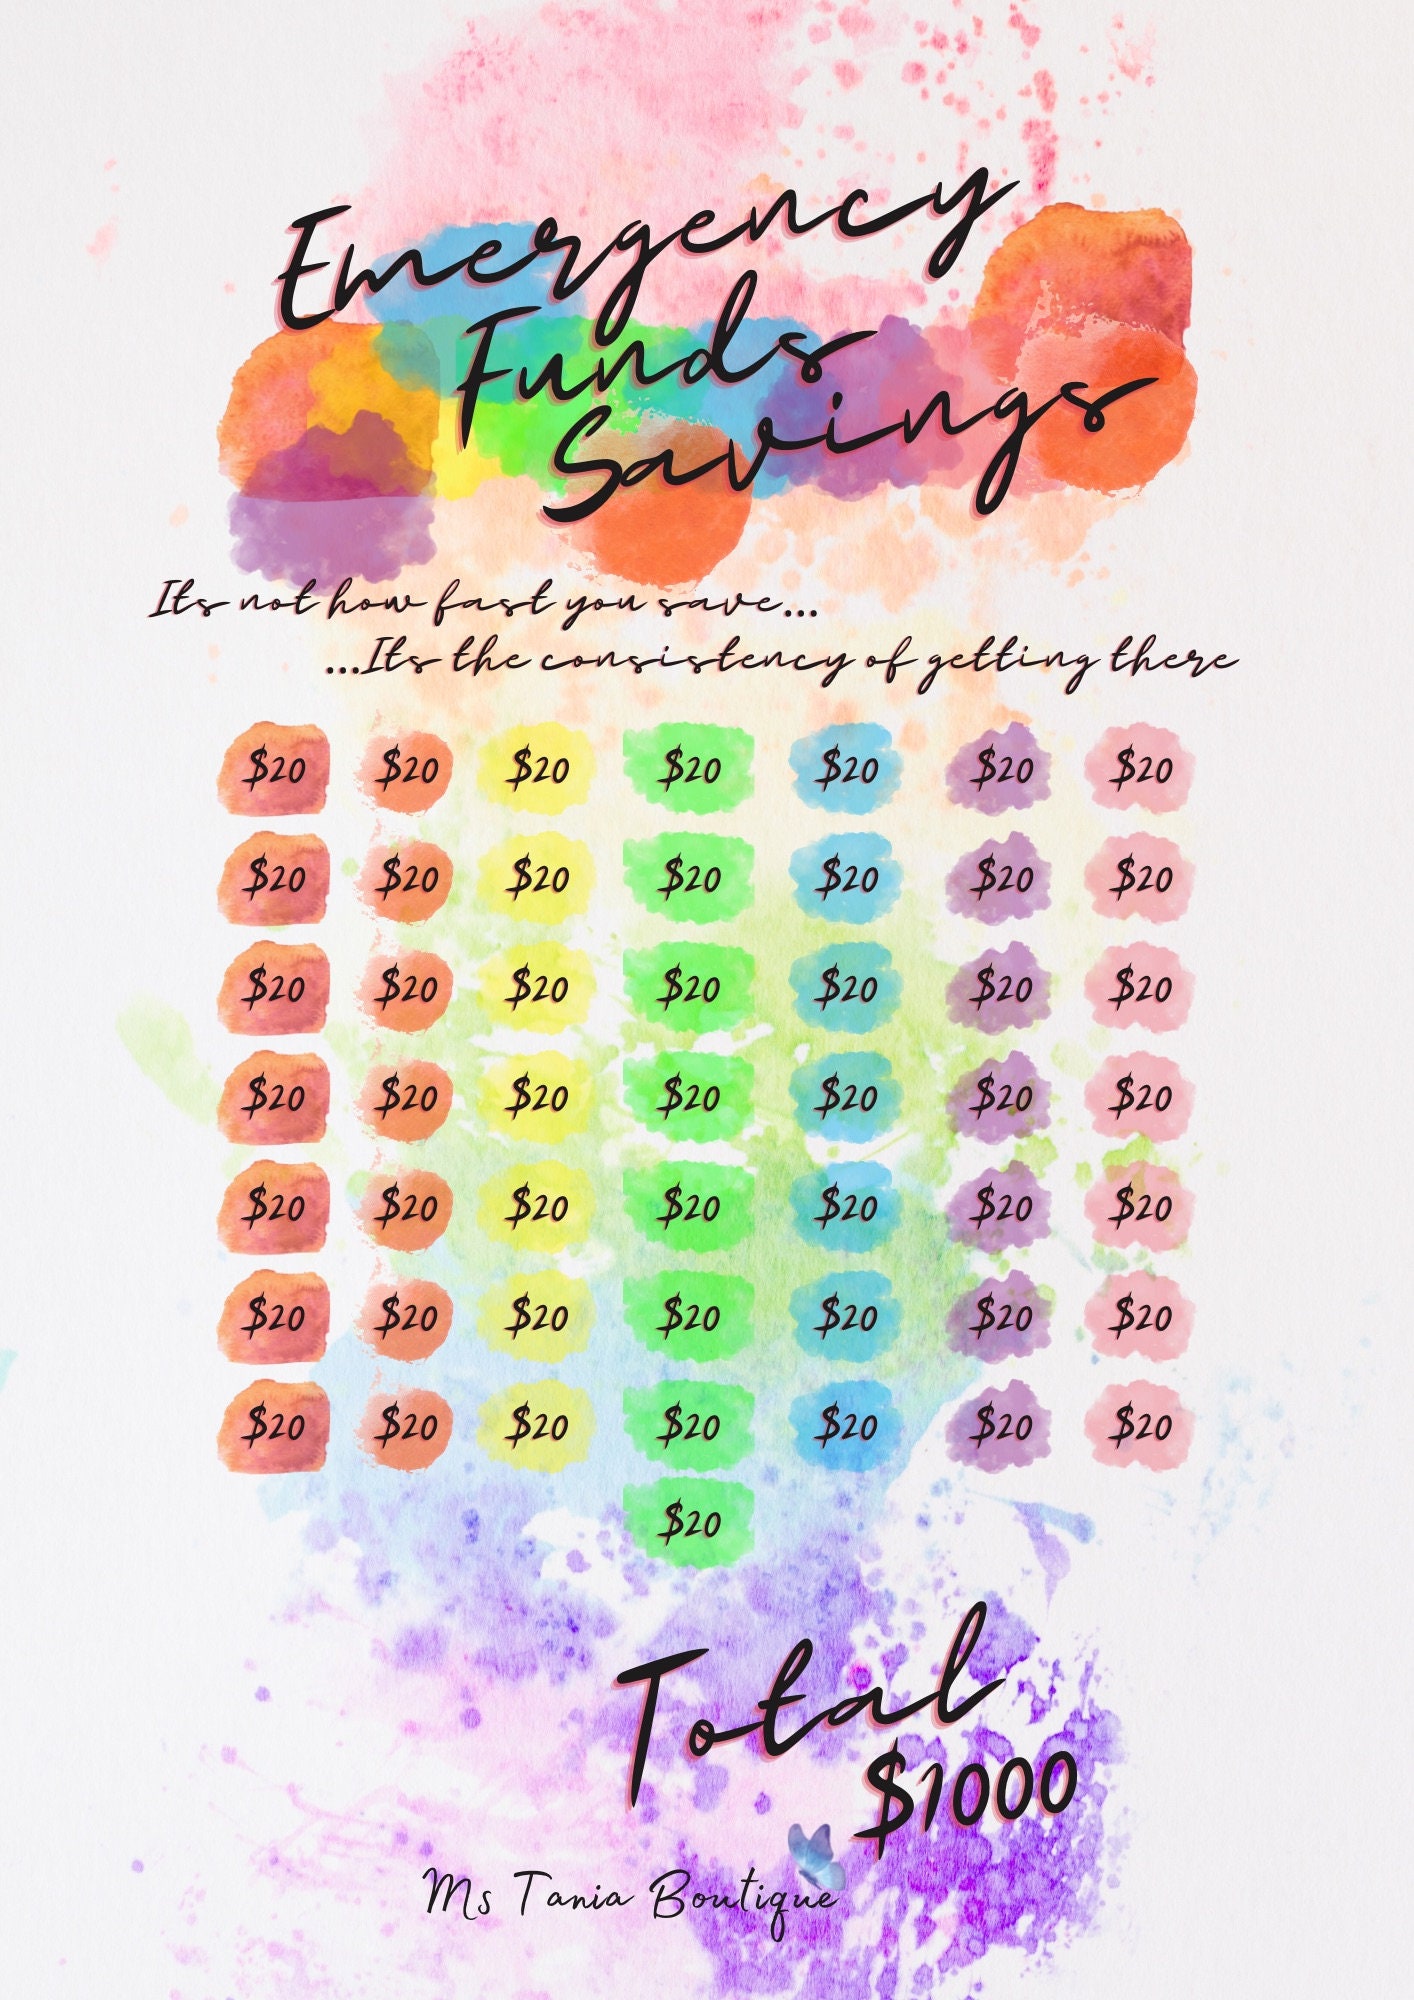 Emergency
Funds
Savings
Its not how fast you save...
...Its the consistency of getting there
$20 $20 $20 $20 $20 $20 $20
$20 $20 $20 $20 $20 $20 $20
$20 $20 $20 $20 $20 $20 $20
$20 $20 $20 $20 $20 $20 $20
$20 $20 $20 $20 $20 $20 $20
$20 $20 $20 $20 $20 $20 $20
$20 $20 $20 $20 $20 $20 $20
$20
Total
$1000
Ms Tania Boutique